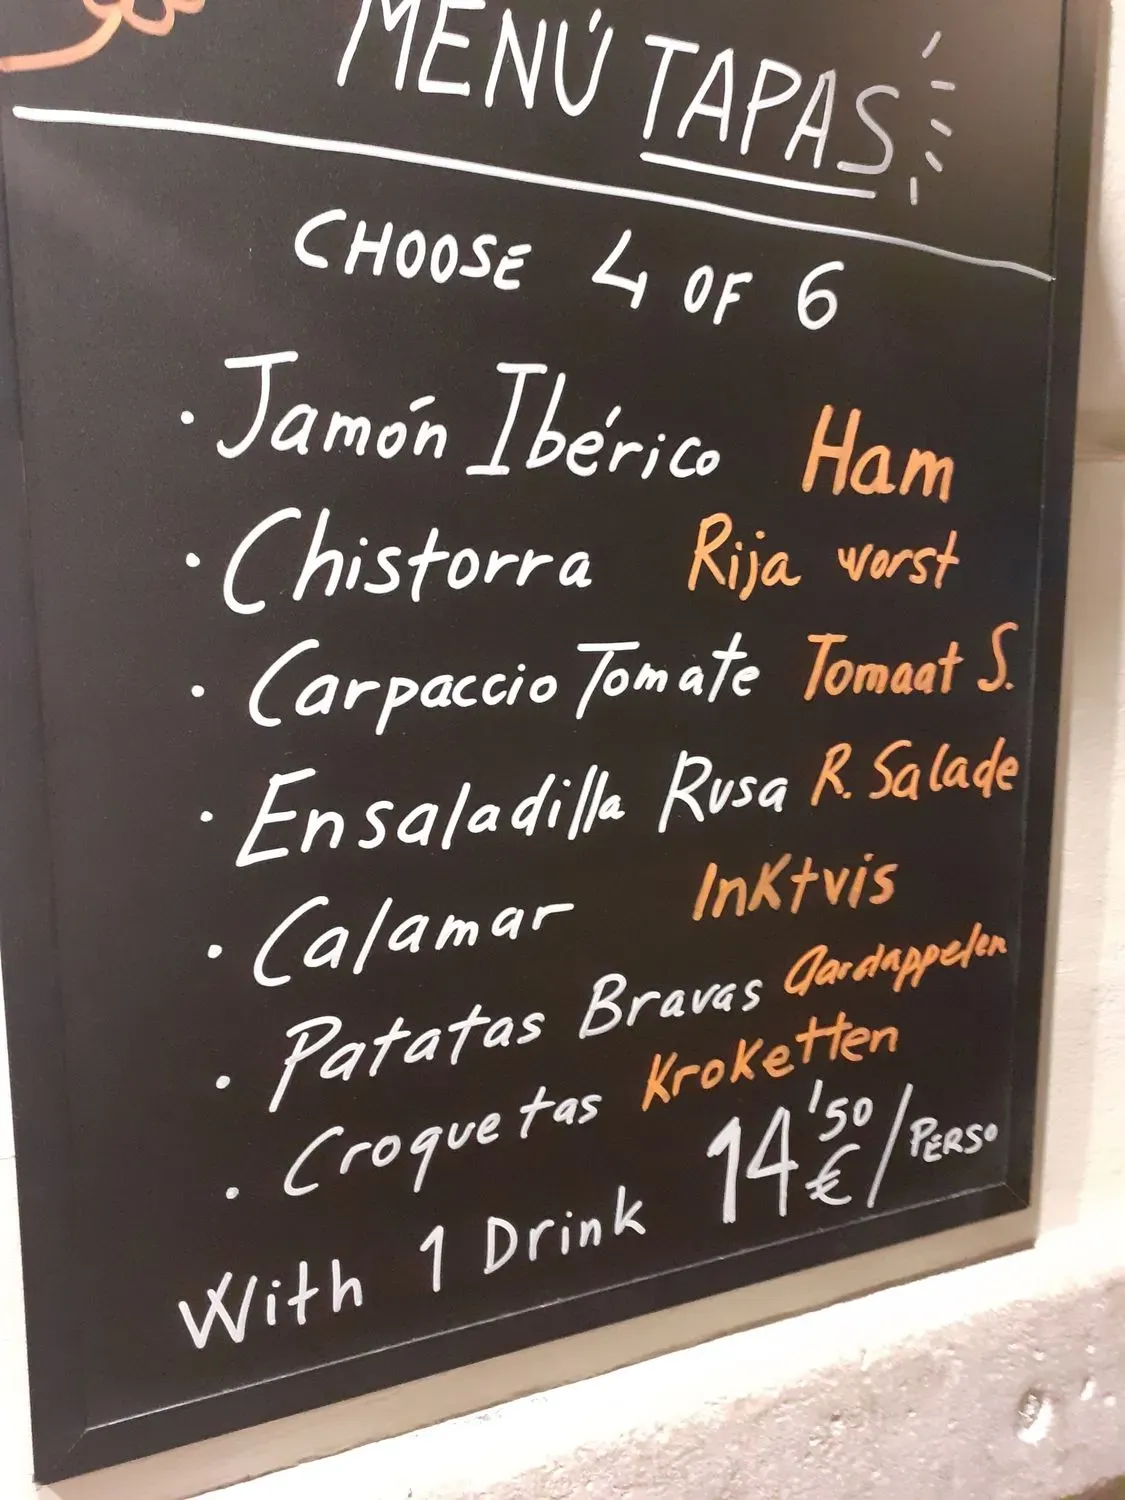 MENÚ TAPAS
CHOOSE 4 OF 6
· Jamón Ibérico Ham
· Chistorra Rija worst
· Carpaccio Tomate Tomaat S.
· Ensaladilla Rusa R. Salade
· Calamar Inktvis
· Patatas Bravas Aardappelen
· Croquetas Kroketten
With 1 Drink 14'50 €/PERSO